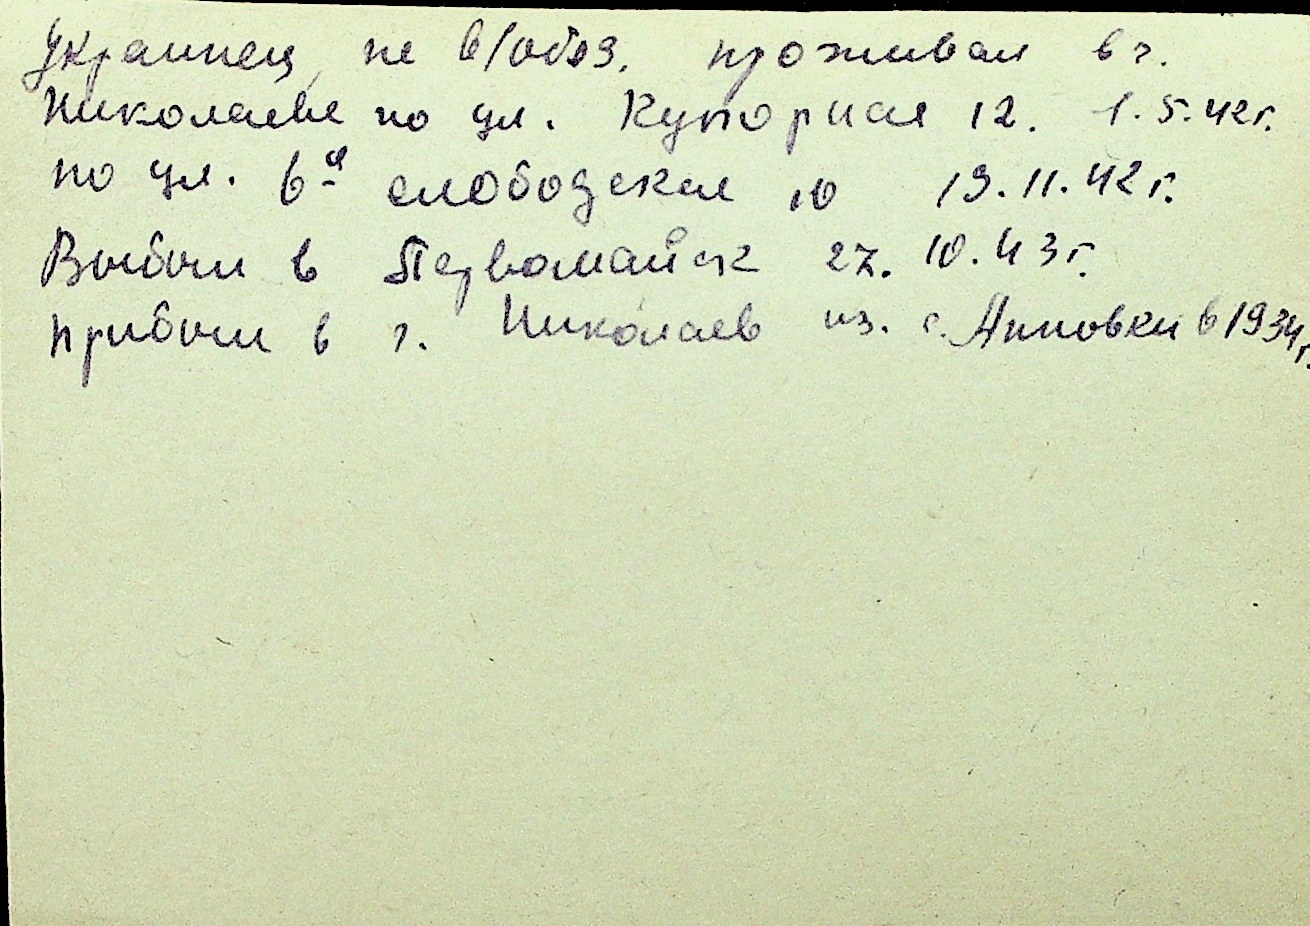 Украинец, не в/обяз. проживал в г.
Николаеве по ул. Купорная 12. 1.5.42г.
по ул. 6я слободская 10 19.11.42г.
Выбыл в Первомайск 27.10.43г.
прибыл в г. Николаев из. с. Анновки в 1934г.